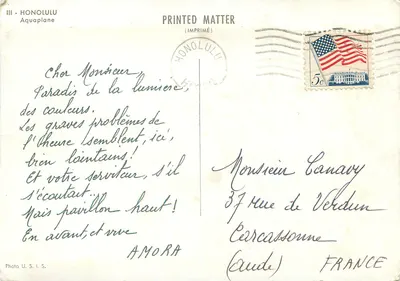 III - HONOLULU
Aquaplane
PRINTED MATTER
(IMPRIMÉ)
HONOLULU
5c
Cher Monsieur,
Paradis de la lumière,
des couleurs.
Les graves problèmes de
l'heure semblent, ici,
bien lointains!
Et votre serviteur, s'il
s'écoutait...
Mais pavillon haut!
En avant, et vive
AMORA
Monsieur Canavy
37 rue de Verdun
Carcassonne
(Aude) FRANCE
Photo U. S. I. S.